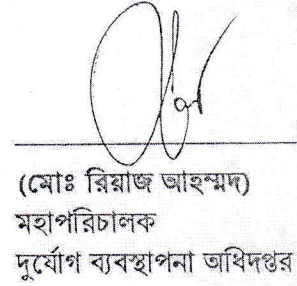 (মোঃ রিয়াজ আহম্মদ)
মহাপরিচালক
দুর্যোগ ব্যবস্থাপনা অধিদপ্তর